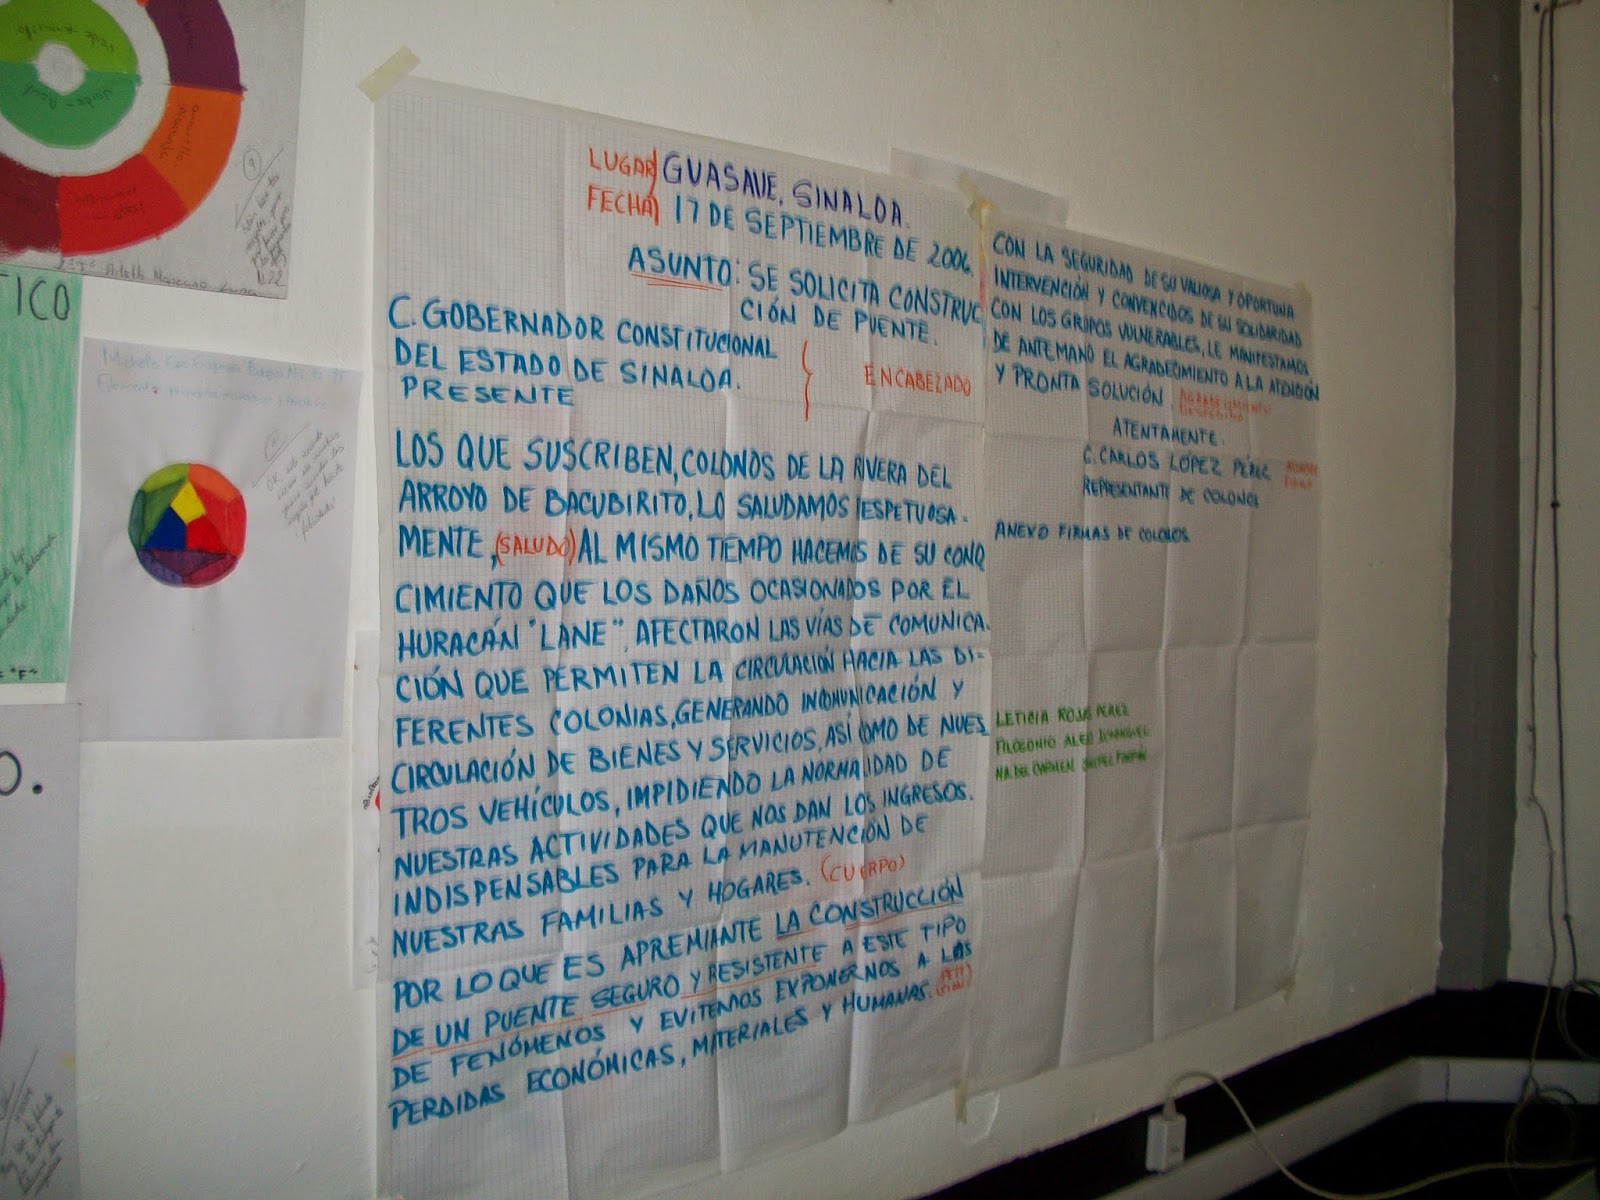 LUGAR) GUASAVE, SINALOA.
FECHA) 17 DE SEPTIEMBRE DE 2006.
ASUNTO: SE SOLICITA CONSTRUC
CIÓN DE PUENTE.
C. GOBERNADOR CONSTITUCIONAL
DEL ESTADO DE SINALOA.
PRESENTE
ENCABEZADO
LOS QUE SUSCRIBEN, COLONOS DE LA RIVERA DEL
ARROYO DE BACUBIRITO, LO SALUDAMOS RESPETUOSA-
MENTE, (SALUDO) AL MISMO TIEMPO HACEMOS DE SU CONO
CIMIENTO QUE LOS DAÑOS OCASIONADOS POR EL
HURACÁN "LANE", AFECTARON LAS VÍAS DE COMUNICA-
CIÓN QUE PERMITEN LA CIRCULACIÓN HACIA LAS DI-
FERENTES COLONIAS, GENERANDO INCOMUNICACIÓN Y
CIRCULACIÓN DE BIENES Y SERVICIOS, ASÍ COMO DE NUES
TROS VEHÍCULOS, IMPIDIENDO LA NORMALIDAD DE
NUESTRAS ACTIVIDADES QUE NOS DAN LOS INGRESOS.
INDISPENSABLES PARA LA MANUTENCIÓN DE
NUESTRAS FAMILIAS Y HOGARES. (CUERPO)
POR LO QUE ES APREMIANTE LA CONSTRUCCIÓN
DE UN PUENTE SEGURO Y RESISTENTE A ESTE TIPO
DE FENÓMENOS Y EVITEMOS EXPONERNOS A LAS
PERDIDAS ECONÓMICAS, MATERIALES Y HUMANAS.
CON LA SEGURIDAD DE SU VALIOSA Y OPORTUNA
INTERVENCIÓN Y CONVENCIDOS DE SU SOLIDARIDAD
CON LOS GRUPOS VULNERABLES, LE MANIFESTAMOS
DE ANTEMANO EL AGRADECIMIENTO A LA ATENCIÓN
Y PRONTA SOLUCIÓN. AGRADECIMIENTO
DESPEDIDA
ATENTAMENTE.
C. CARLOS LÓPEZ PÉREZ NOMBRE
FIRMA
REPRESENTANTE DE COLONOS
ANEXO FIRMAS DE COLONOS
LETICIA ROJAS PEREZ
FILOGONIO
MA. DEL CARMEN
TICO
O.